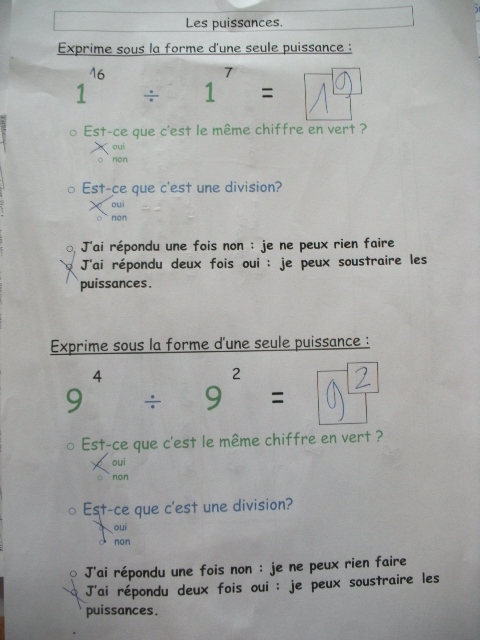 Les puissances.
Exprime sous la forme d'une seule puissance :
1¹⁶ ÷ 1⁷ = 1⁹
○ Est-ce que c'est le même chiffre en vert ?
oui
○ non
○ Est-ce que c'est une division?
oui
○ non
○ J'ai répondu une fois non : je ne peux rien faire
○ J'ai répondu deux fois oui : je peux soustraire les
puissances.
Exprime sous la forme d'une seule puissance :
9⁴ ÷ 9² = 9²
○ Est-ce que c'est le même chiffre en vert ?
oui
○ non
○ Est-ce que c'est une division?
oui
○ non
○ J'ai répondu une fois non : je ne peux rien faire
○ J'ai répondu deux fois oui : je peux soustraire les
puissances.